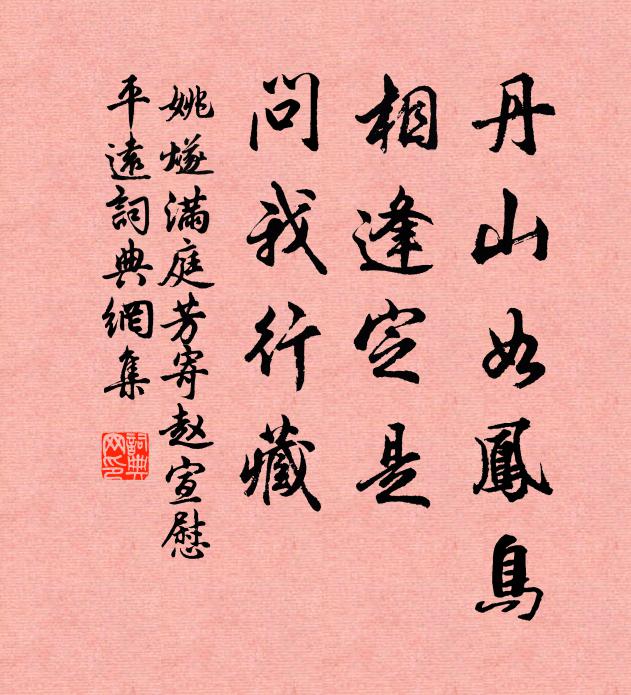 丹山如鳳鳥
相逢定是
問我行藏
姚燧滿庭芳寄赵宣慰
平遠詞典網集
詞典
网印